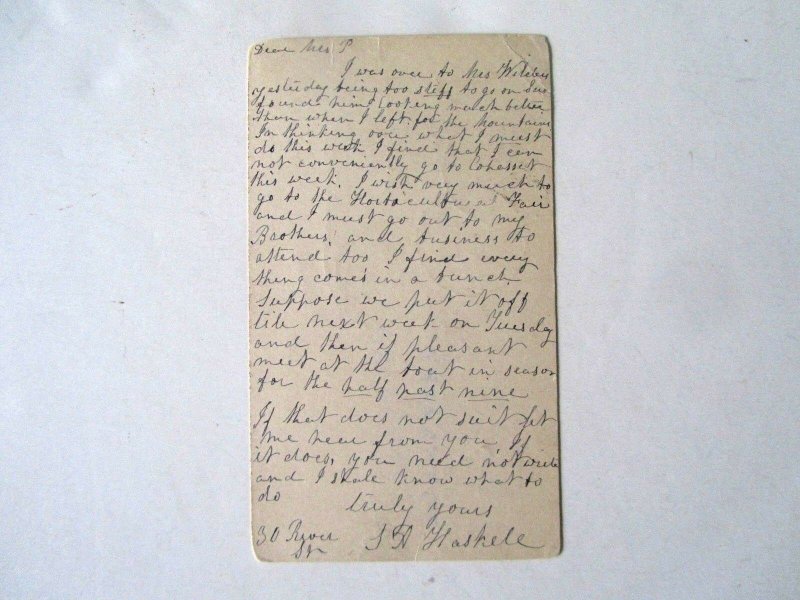 Dear Mrs P
I was over to Mrs
yesterday being too stiff to go on
found him looking much better
than when I left for the Mountains
In thinking over what I must
do this week I find that I can
not conveniently go to Cohasset
this week. I wish very much to
go to the Horticultural Fair
and I must go out to my
Brothers, and business to
attend too I find every
thing comes in a bunch.
Suppose we put it off
till next week on Tuesday
and then if pleasant
meet at the boat in season
for the half past nine
If that does not suit let
me hear from you If
it does, you need not write
and I shall know what to
do
truly yours
30 River St S A Haskell